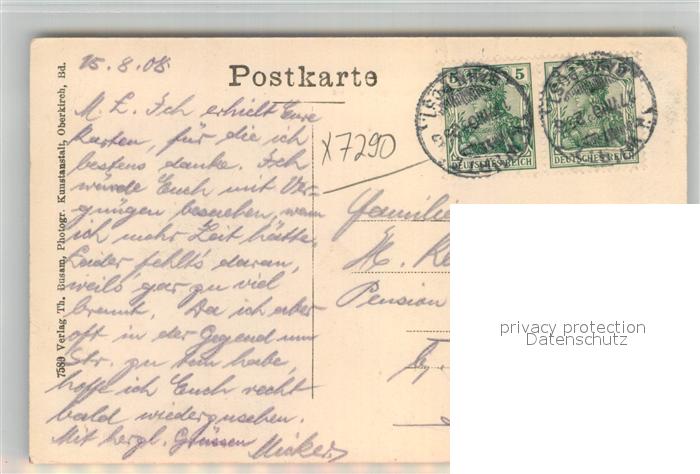 15.8.08.
Postkarte
M. L. Ich erhielt Eure
Karten, für die ich
bestens danke. Ich
würde Euch mit Ver-
gnügen besuchen, wenn
ich mehr Zeit hätte.
Leider fehlt's daran,
weil's gar zu viel
brennt. Da ich aber
oft in der Gegend um
Str. zu tun habe,
hoffe ich Euch recht
bald wiederzusehen.
Mit herzl. Grüssen
7589 Verlag Th. Busam, Photogr. Kunstanstalt, Oberkirch, Bd.
X7290
5 5
DEUTSCHES REICH
DEUTSCHES REICH
Familie
M.
Pension
privacy protection
Datenschutz